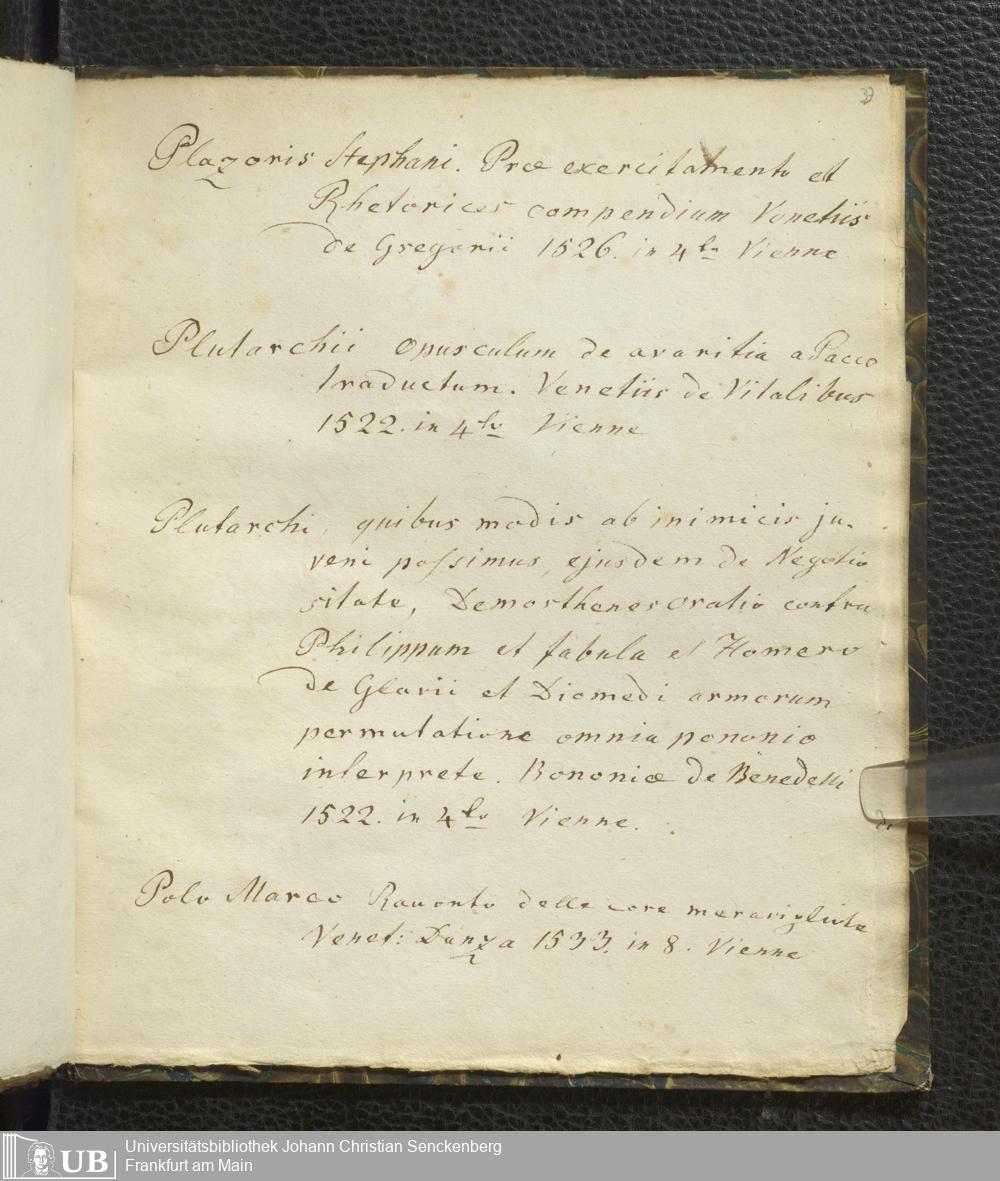 37
Plazoris Stephani. Præ exercitamenta et
Rhetorices compendium Venetiis
de Gregorii 1526. in 4to Vienne
Plutarchii Opusculum de avaritia a Pacco
traductum. Venetiis de Vitalibus
1522. in 4to Vienne
Plutarchi, quibus modis ab inimicis ju-
veni possimus, ejusdem de Negotio
sitate, Demosthenes oratio contra
Philippum et fabula et Homero
de Glavii et Diomedi armorum
permutatione omnia pononio
interprete. Bononiæ de Benedetti
1522. in 4to Vienne.
de
Polo Marco Rauonto delle core meravigliote
Venet: Danza 1533. in 8. Vienne
UB
Universitätsbibliothek Johann Christian Senckenberg
Frankfurt am Main